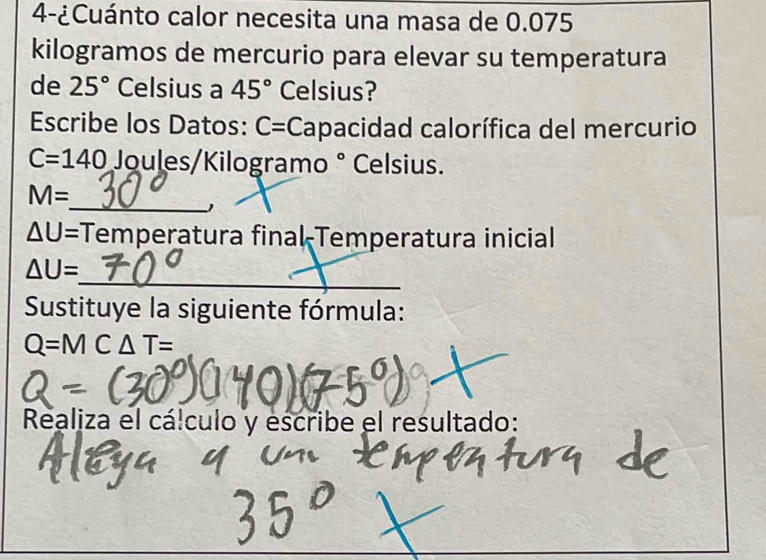 4-¿Cuánto calor necesita una masa de 0.075
kilogramos de mercurio para elevar su temperatura
de 25° Celsius a 45° Celsius?
Escribe los Datos: C=Capacidad calorífica del mercurio
C=140 Joules/Kilogramo ° Celsius.
M= 30°,
ΔU=Temperatura final-Temperatura inicial
ΔU= 70°
Sustituye la siguiente fórmula:
Q=M C Δ T=
Q = (30°)(140)(75°)
Realiza el cálculo y escribe el resultado:
a una de
35°